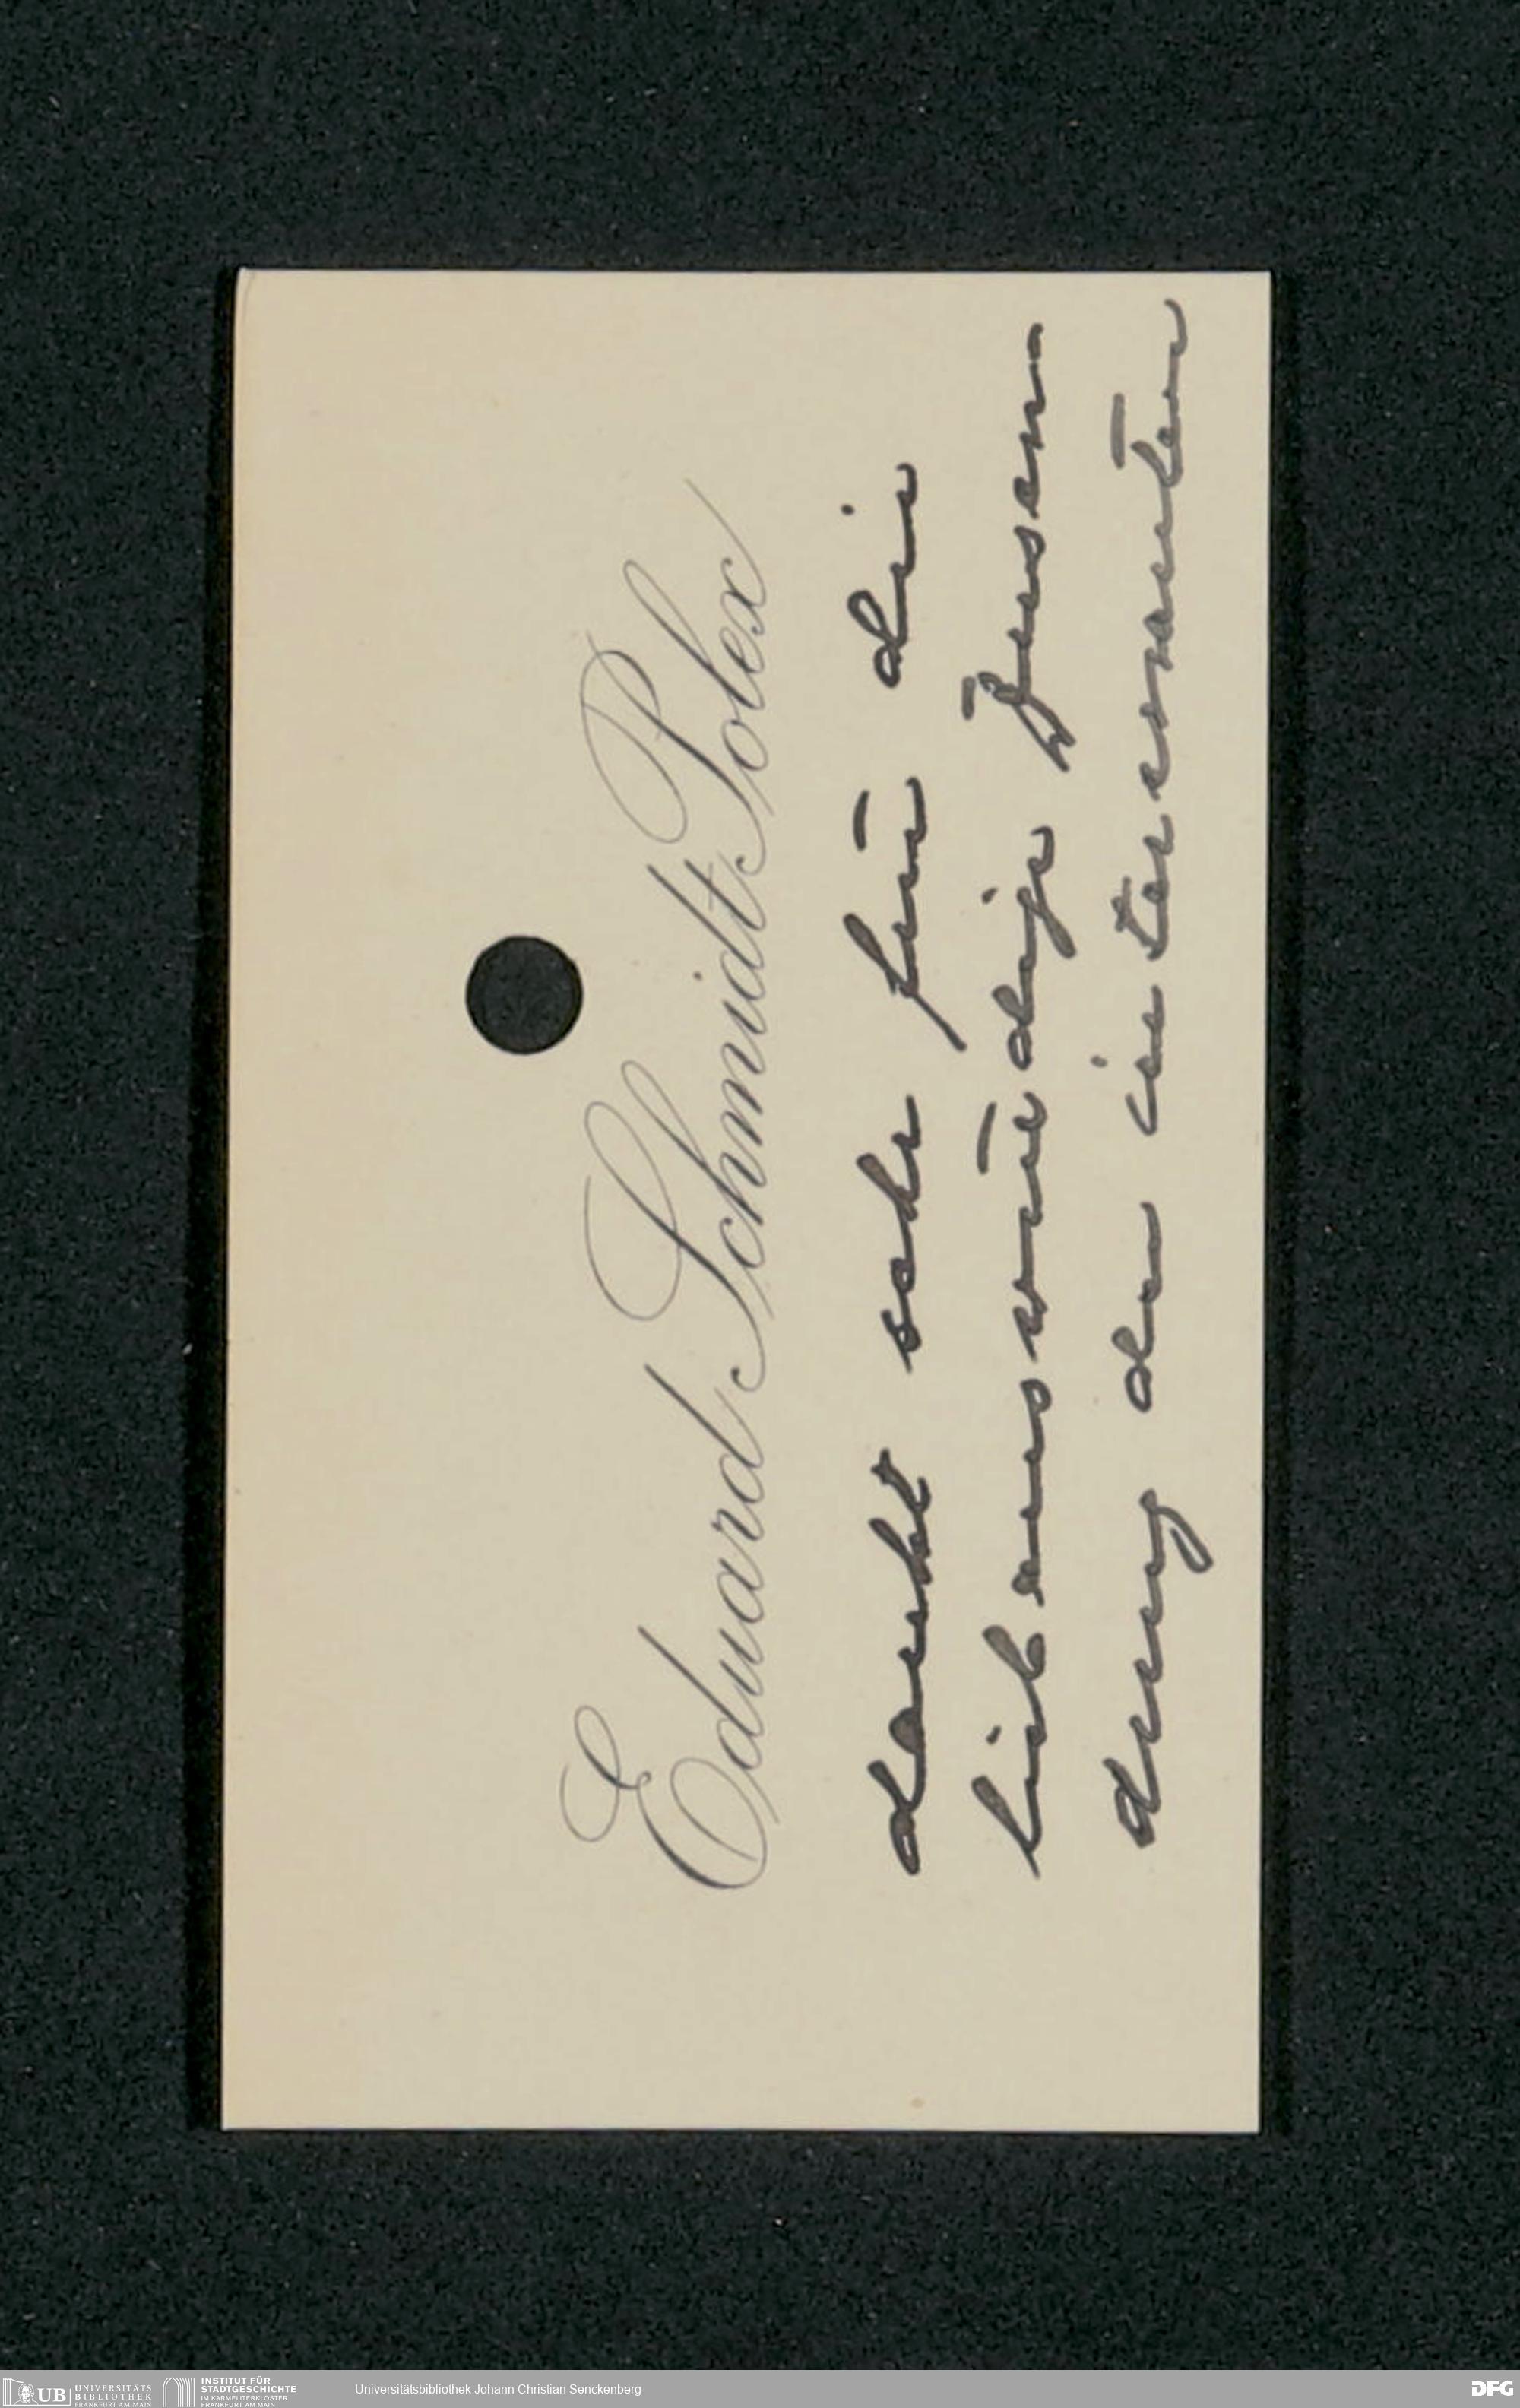 Eduard Schmidt Polex
dankt sehr für die
liebenswürdige Zusen-
dung der interessanten
UB UNIVERSITÄTS
BIBLIOTHEK
FRANKFURT AM MAIN
INSTITUT FÜR
STADTGESCHICHTE
IM KARMELITERKLOSTER
FRANKFURT AM MAIN
Universitätsbibliothek Johann Christian Senckenberg
DFG